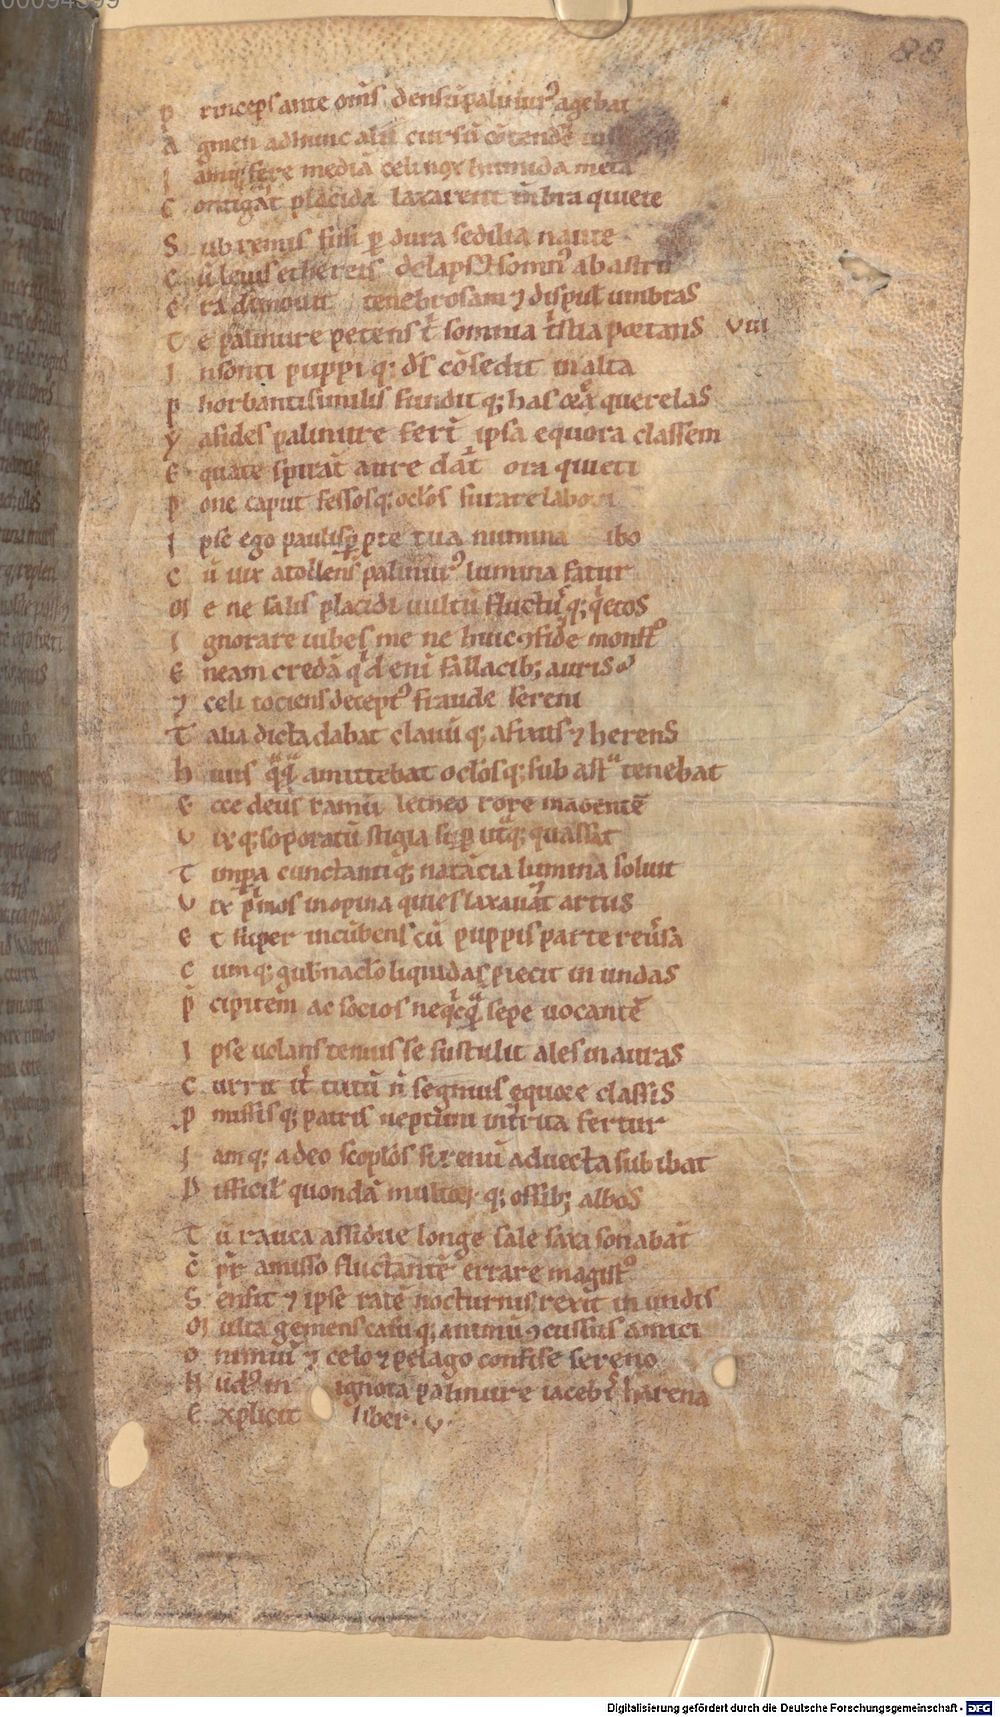 00094399
88
P rinceps ante om̅s densū palinur᾿ agebat
A gmen ad hunc alii cursū c̅tende
I amq; fere mediā celi nox humida metā
C ontigͣat placida laxarent m̅bra quiete
S ub remis fusi ꝑ dura sedilia naute
C ū leuis ethereis delapsꝰ somnꝰ ab astris
E ra dimouit tenebrosam ⁊ dispul̅ umbras
T e palinure petens t̅ somnia tͥstia portans VIII
I nsonti puppi q; ds̅ c̅sedit in alta
P horbanti similis fundit q; has orͣ querelas
Y asides palinure ferͭ ipsa equora classem
E quate spirāt aure dat̅ ora quieti
P one caput fessosq; oclo̅s furare labori
I pse ego paulisꝑ pͬ te tua numina ibo
C ū uix atollens palinurꝰ lumina fatur
M e ne salis placidi uultū fluctuͥ q; qͥetos
I gnorare iubes me ne huic ꝯfide monstͦ
E neam credā qͥd eni̅ fallacib; auris
⁊ celi tociens deceptꝰ fraude sereni
T alia dicta dabat clauū q; afixus ⁊ herens
N us qͣ qͣ amittebat oclo̅s q; sub astͣ tenebat
E cce deus ramū letheo rore madentē
V iq; soporatū stigia suꝑ utͣq; quassat
T impͬa cunctanti q; natācia lumina soluit
V ix pͥmos inopina quies laxauāt artus
E t super incūbens cū puppis parte reuͬsa
C um q; gub̅naclo̅ liquidas ꝓiecit in undas
P̅ cipitem ac socios neqͥcqͣ sepe uocantē
I pse uolans tenuis se sustulit ales in auras
C urrit it̅ tutū n̅ segnius equore classis
P missis q; patris neptuni int̅rita fertur
I amq; adeo scoplo̅s sirenū aduecta subibat
D ifficil̅ quondā multor̅ q; ossib; albos
T ū rauca assidue longe sale saxa sonabāt
C̅ pͬr amisso fluctantē errare magistͦ
S ensit ⁊ ipse ratē nocturnis rexit in undis
M ulta gemens casu q; animū ꝯcussus amici
O nimiū ⁊ celo ⁊ pelago confise sereno
N udꝰ in ignota palinure iacebͥ harena
E xplicit liber · V ·
Digitalisierung gefördert durch die Deutsche Forschungsgemeinschaft - DFG